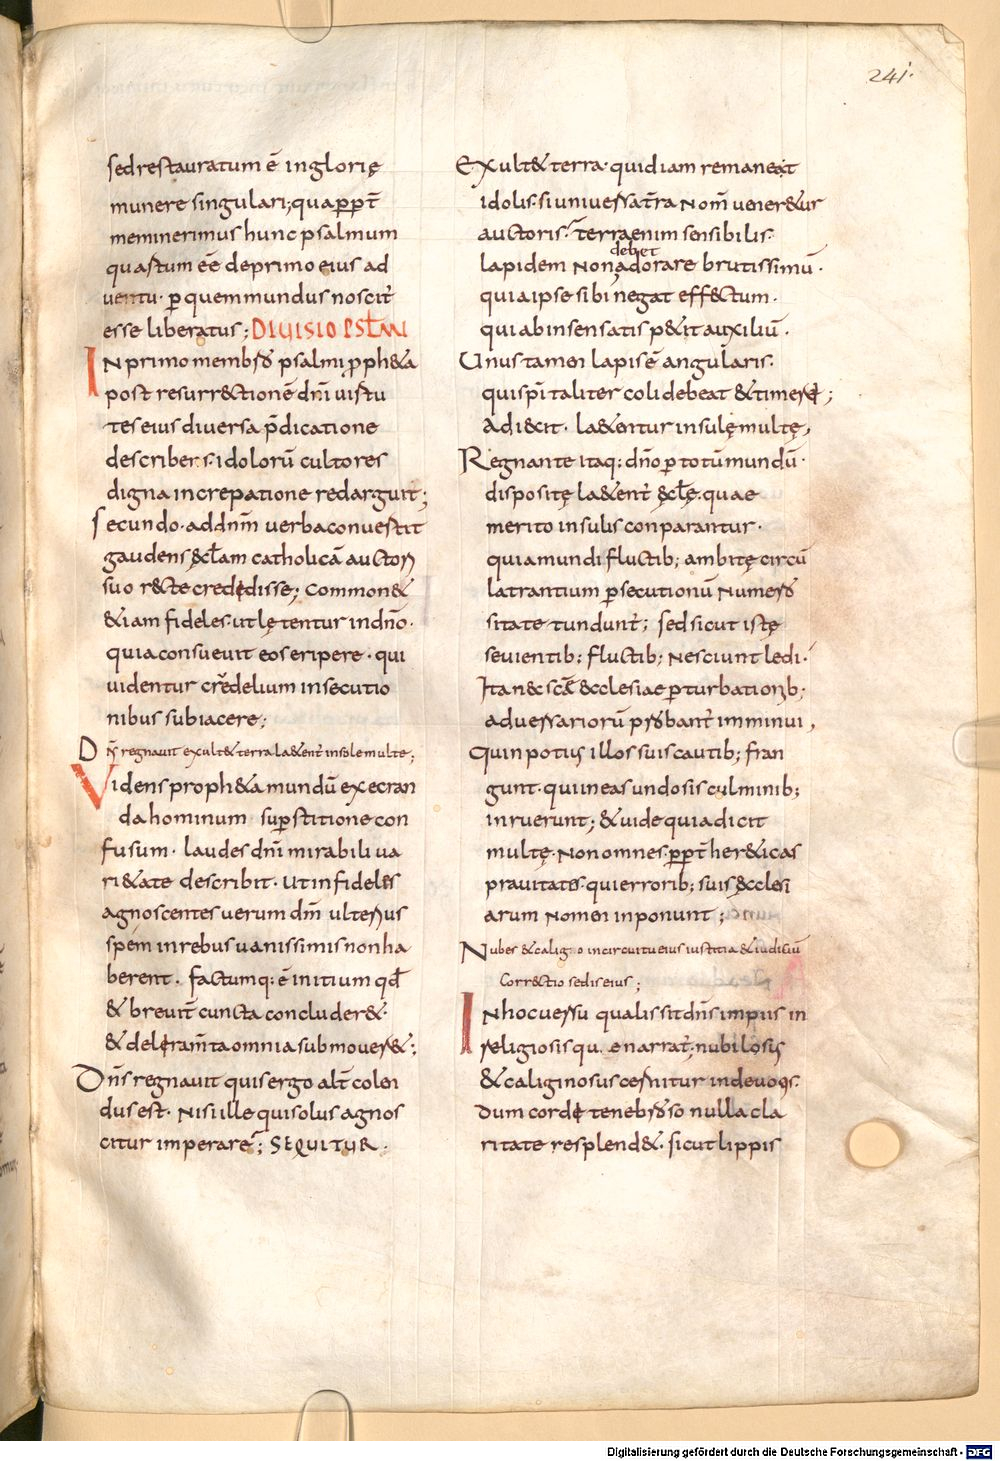 241.
sed restauratum ē inglorię
munere singulari; qua ꝓpt̄
meminerimus hunc psalmum
quastum eē deprimo eius ad
uentu· ꝑ quem mundus noscit̄
esse liberatus; DIUISIO PSLMI
IN primo membro psalmi ꝓph&a
post resurr&tionē dnī uirtu
tes eius diuersa p̄dicatione
describens· idolorū cultores
digna increpatione redarguit;
Secundo· ad dnm̄ uerba conuertit
gaudens &cl̄am catholicā auctori
suo r&te credidisse; Common&
&iam fideles· ut lętentur indnō·
quia consueuit eos eripere· qui
uidentur crudelium insecutio
nibus subiacere;
Dn̄s regnauit exult& terra la&ent̄ insole multe;
Videns proph&a mundū execran
da hominum suꝑstitione con
fusum· laudes dnī mirabili ua
ri&ate describit· Ut infideles
agnoscentes uerum dm̄ ulterius
spem in rebus uanissimis non ha
berent· factumq: ē initium qđ
& breuit̄ cuncta concluder&·
& deleram̄ta omnia submouer&;
Dn̄s regnauit quis ergo alt̄ colen
dus est· Nisi ille qui solus agnos
citur imperare; SEQUITUR·
Exult& terra· quid iam remaneat
idolis· si uniuersa t̄ra Nom̄ uener&ur
auctoris· terra enim sensibilis·
debet
lapidem Non adorare brutissimū·
quia ipse sibi negat eff&tum·
qui ab insensatis p&it auxiliū·
Unus tamen lapis ē angularis·
qui sp̄italiter coli debeat &timeri;
Adi&it· la&entur insulę multę,
Regnante itaq: dnō ꝑ totū mundū·
dispositę la&ent̄ &cl̄ę· quae
merito insulis conparantur·
quia mundi fluctib; ambitę circū
latrantium ꝑsecutionū Numero
sitate tundunt̄; sed sicut istę
seuientib; fluctib; Nesciunt ledi·
Ita n& sc̄ā &cclesiae ꝑturbationib;
aduersariorū probant̄ imminui,
Quin potius illos suis cautib; fran
gunt· qui in eas undosis culminib;
inruerunt; & uide quia dicit
multę· Non omnes· ꝓpt̄ her&icas
prauitates· qui errorib; suis &cclesi
arum Nomen inponunt;
Nubes & caligo in circuitu eius iustitia & iudiciū
Corr&tio sedis eius;
IN hoc uersu qualis sit dn̄s impiis in
religiosisqu· enarrat̄· nubilosus
& caliginosus cernitur indeuotis·
Dum corde tenebroso nulla cla
ritate resplend&· sicut lippis
Digitalisierung gefördert durch die Deutsche Forschungsgemeinschaft - DFG